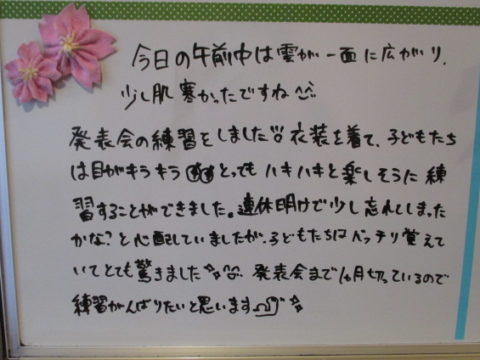 今日の午前中は雲が一面に広がり、
少し肌寒かったですね
発表会の練習をしました!!衣装を着て、子どもたち
は目がキラキラ とってもハキハキと楽しそうに練
習することができました。連休明けで少し忘れてしまった
かな?と心配していましたが、子どもたちはバッチリ覚えて
いてとても驚きました 発表会まで1ヶ月切っているので
練習がんばりたいと思います